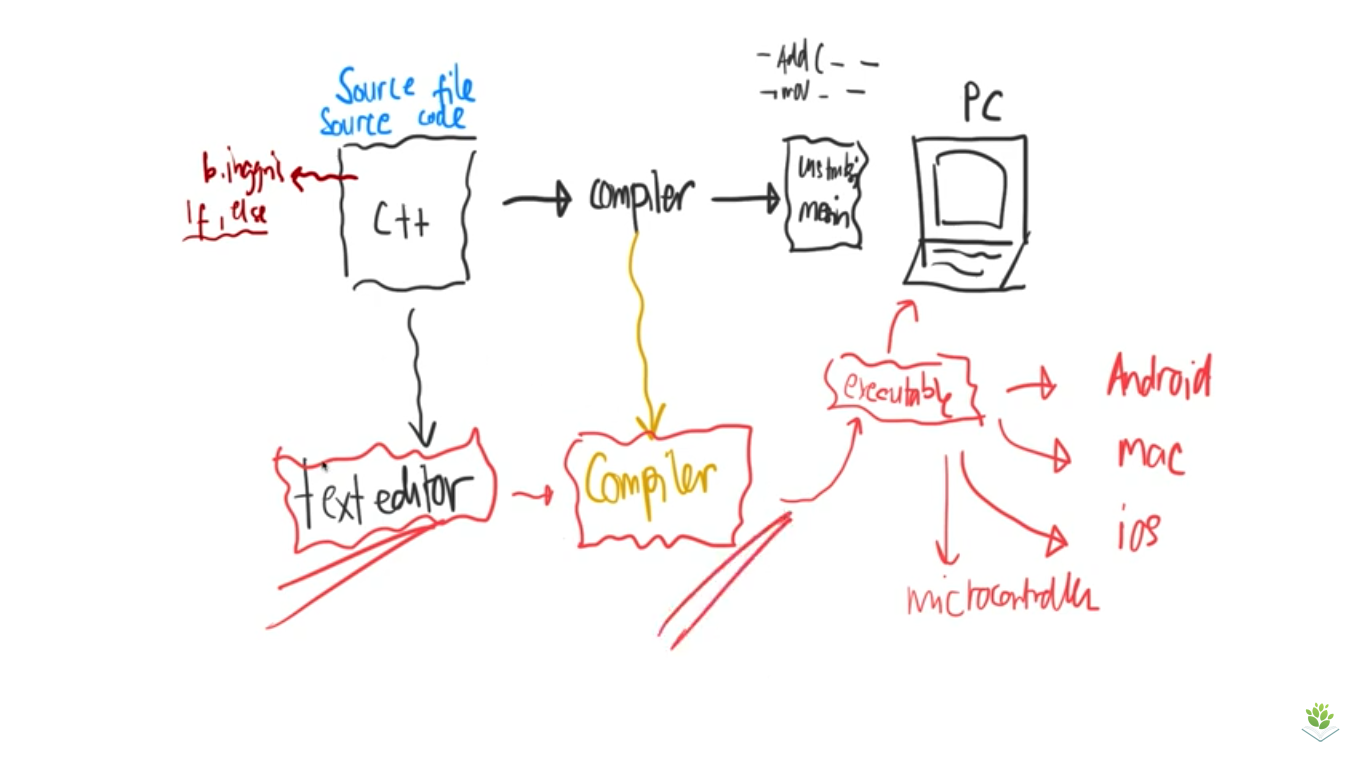 Source file
Source code
b.inggris
If, else
C++
compiler
- Add ( - -
- mov - -
instruksi
mesin
PC
text editor
Compiler
executable
Android
mac
ios
microcontroller